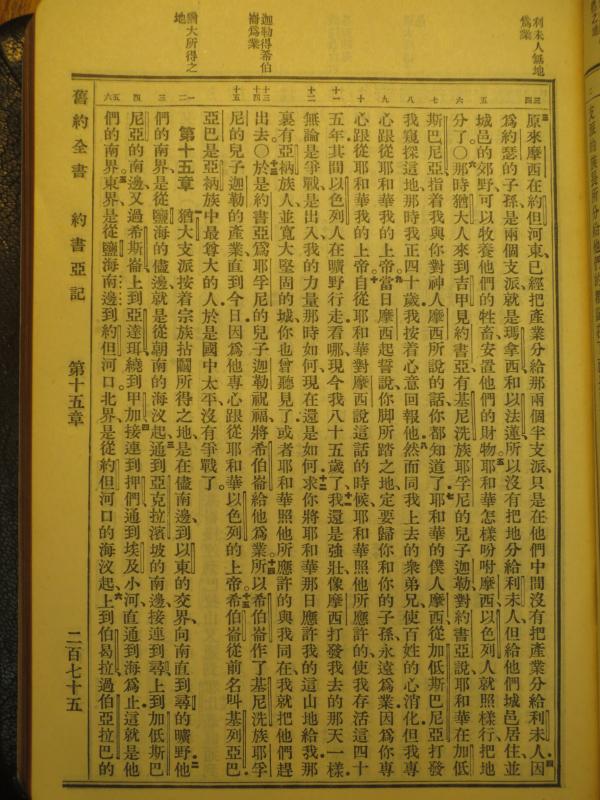 利未人無地
爲業
迦勒得希伯
崙爲業
猶大所得之
地
原來摩西在約但河東已經把產業分給那兩個半支派只是在他們中間沒有把產業分給利未人因
爲約瑟的子孫是兩個支派就是瑪拿西和以法蓮所以沒有把地分給利未人但給他們城邑居住並
城邑的郊野可以牧養他們的牲畜安置他們的財物耶和華怎樣吩咐摩西以色列人就照樣行把地
分了〇那時猶大人來到吉甲見約書亞有基尼洗族耶孚尼的兒子迦勒對約書亞說耶和華在加低
斯巴尼亞指着我與你對神人摩西所說的話你都知道了耶和華的僕人摩西從加低斯巴尼亞打發
我窺探這地那時我正四十歲我按着心意回報他然而同我上去的衆弟兄使百姓的心消化但我專
心跟從耶和華我的上帝當日摩西起誓說你脚所踏之地定要歸你和你的子孫永遠爲業因爲你專
心跟從耶和華我的上帝自從耶和華對摩西說這話的時候耶和華照他所應許的使我存活這四十
五年其間以色列人在曠野行走看哪現今我八十五歲了我還是強壯像摩西打發我去的那天一樣
無論是爭戰是出入我的力量那時如何現在還是如何求你將耶和華那日應許我的這山地給我那
裏有亞衲族人並寬大堅固的城你也曾聽見了或者耶和華照他所應許的與我同在我就把他們趕
出去〇於是約書亞爲耶孚尼的兒子迦勒祝福將希伯崙給他爲業所以希伯崙作了基尼洗族耶孚
尼的兒子迦勒的產業直到今日因爲他專心跟從耶和華以色列的上帝希伯崙從前名叫基列亞巴
亞巴是亞衲族中最尊大的人於是國中太平沒有爭戰了
第十五章 猶大支派按着宗族拈鬮所得之地是在儘南邊到以東的交界向南直到尋的曠野他
們的南界是從鹽海的儘邊就是從朝南的海汊起通到亞克拉濱坡的南邊接連到尋上到加低斯巴
尼亞的南邊又過希斯崙上到亞達珥繞到甲加接連到押們通到埃及小河直通到海爲止這就是他
們的南界東界是從鹽海南邊到約但河口北界是從約但河口的海汊起上到伯曷拉過伯亞拉巴的
舊約全書 約書亞記 第十五章 二百七十五